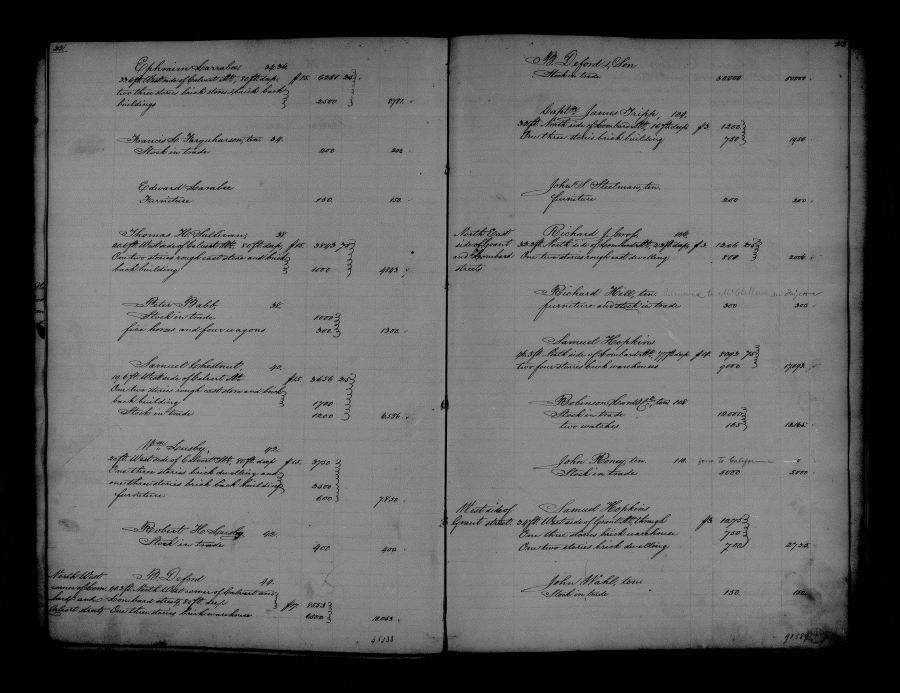 221
Ephraim Larrabee 34.36
33.6 ft. West side of Calvert St., 80 ft. deep $15. 6281 25
two three stories brick stores, brick back
buildings 2500 8781.
Francis G. Farquharson, ten 34.
Stock in trade 200 200
Edward Larabee
Furniture 150. 150.
Thomas H. Sullivan, 38.
20.6 ft. West side of Calvert St., 80 ft. deep, $15. 3843 75
One two stories rough cast store and brick
back building 1000 4843
Peter Babb 38.
Stock in trade 1000
five horses and four wagons 300 1300.
Samuel Chestnut, 40.
19.6 ft. West side of Calvert St. $15. 3656 25
One two stories rough cast store and brick
back building 1700
Stock in trade 1200 6556
Wm. Lusby, 42.
20 ft. West side of Calvert St., 80 ft. deep $15. 3750
One three stories brick dwelling and
one three stories brick back building 3500
furniture 600 7850
Robert H. Lusby 42.
Stock in trade 400 400
North West B. Deford 44.
corner of Lom- 40.3 ft. North West corner of Calvert and
bard and Lombard streets, 80 ft. deep $17. 8553
Calvert streets One three stories brick warehouse 6500 15.053
B. Deford & Son
Stock in trade 50000 50000
Capt. James Tripp, 104.
32 ft. North side of Lombard St., deep $3 1200
One three stories brick building 750 1950
John S. Steelman, ten.
furniture 200 200
North East Richard J. Cross 106.
side of Grant 32.2 ft. North side of Lombard St., deep $3. 1206 25
and Lombard One two stories rough cast dwelling 800 2006
streets
Richard Hill, ten. to
furniture and stock in trade 300 300
Samuel Hopkins
ft. North side of Lombard St., 77 ft. deep $14. 8093 75
two four stories brick warehouses 9000 17093
Robinson & Co., ten 108
Stock in trade 12000
two watches 165 12165
John Roney, ten. 110. gone to California
Stock in trade 5000 5000
West side of Samuel Hopkins
Grant street. 34 ft. West side of Grant St. through $3 1275
One three stories brick warehouse 750
One two stories brick dwelling 700 2725
John Wahl, ten
Stock in trade 150 150.